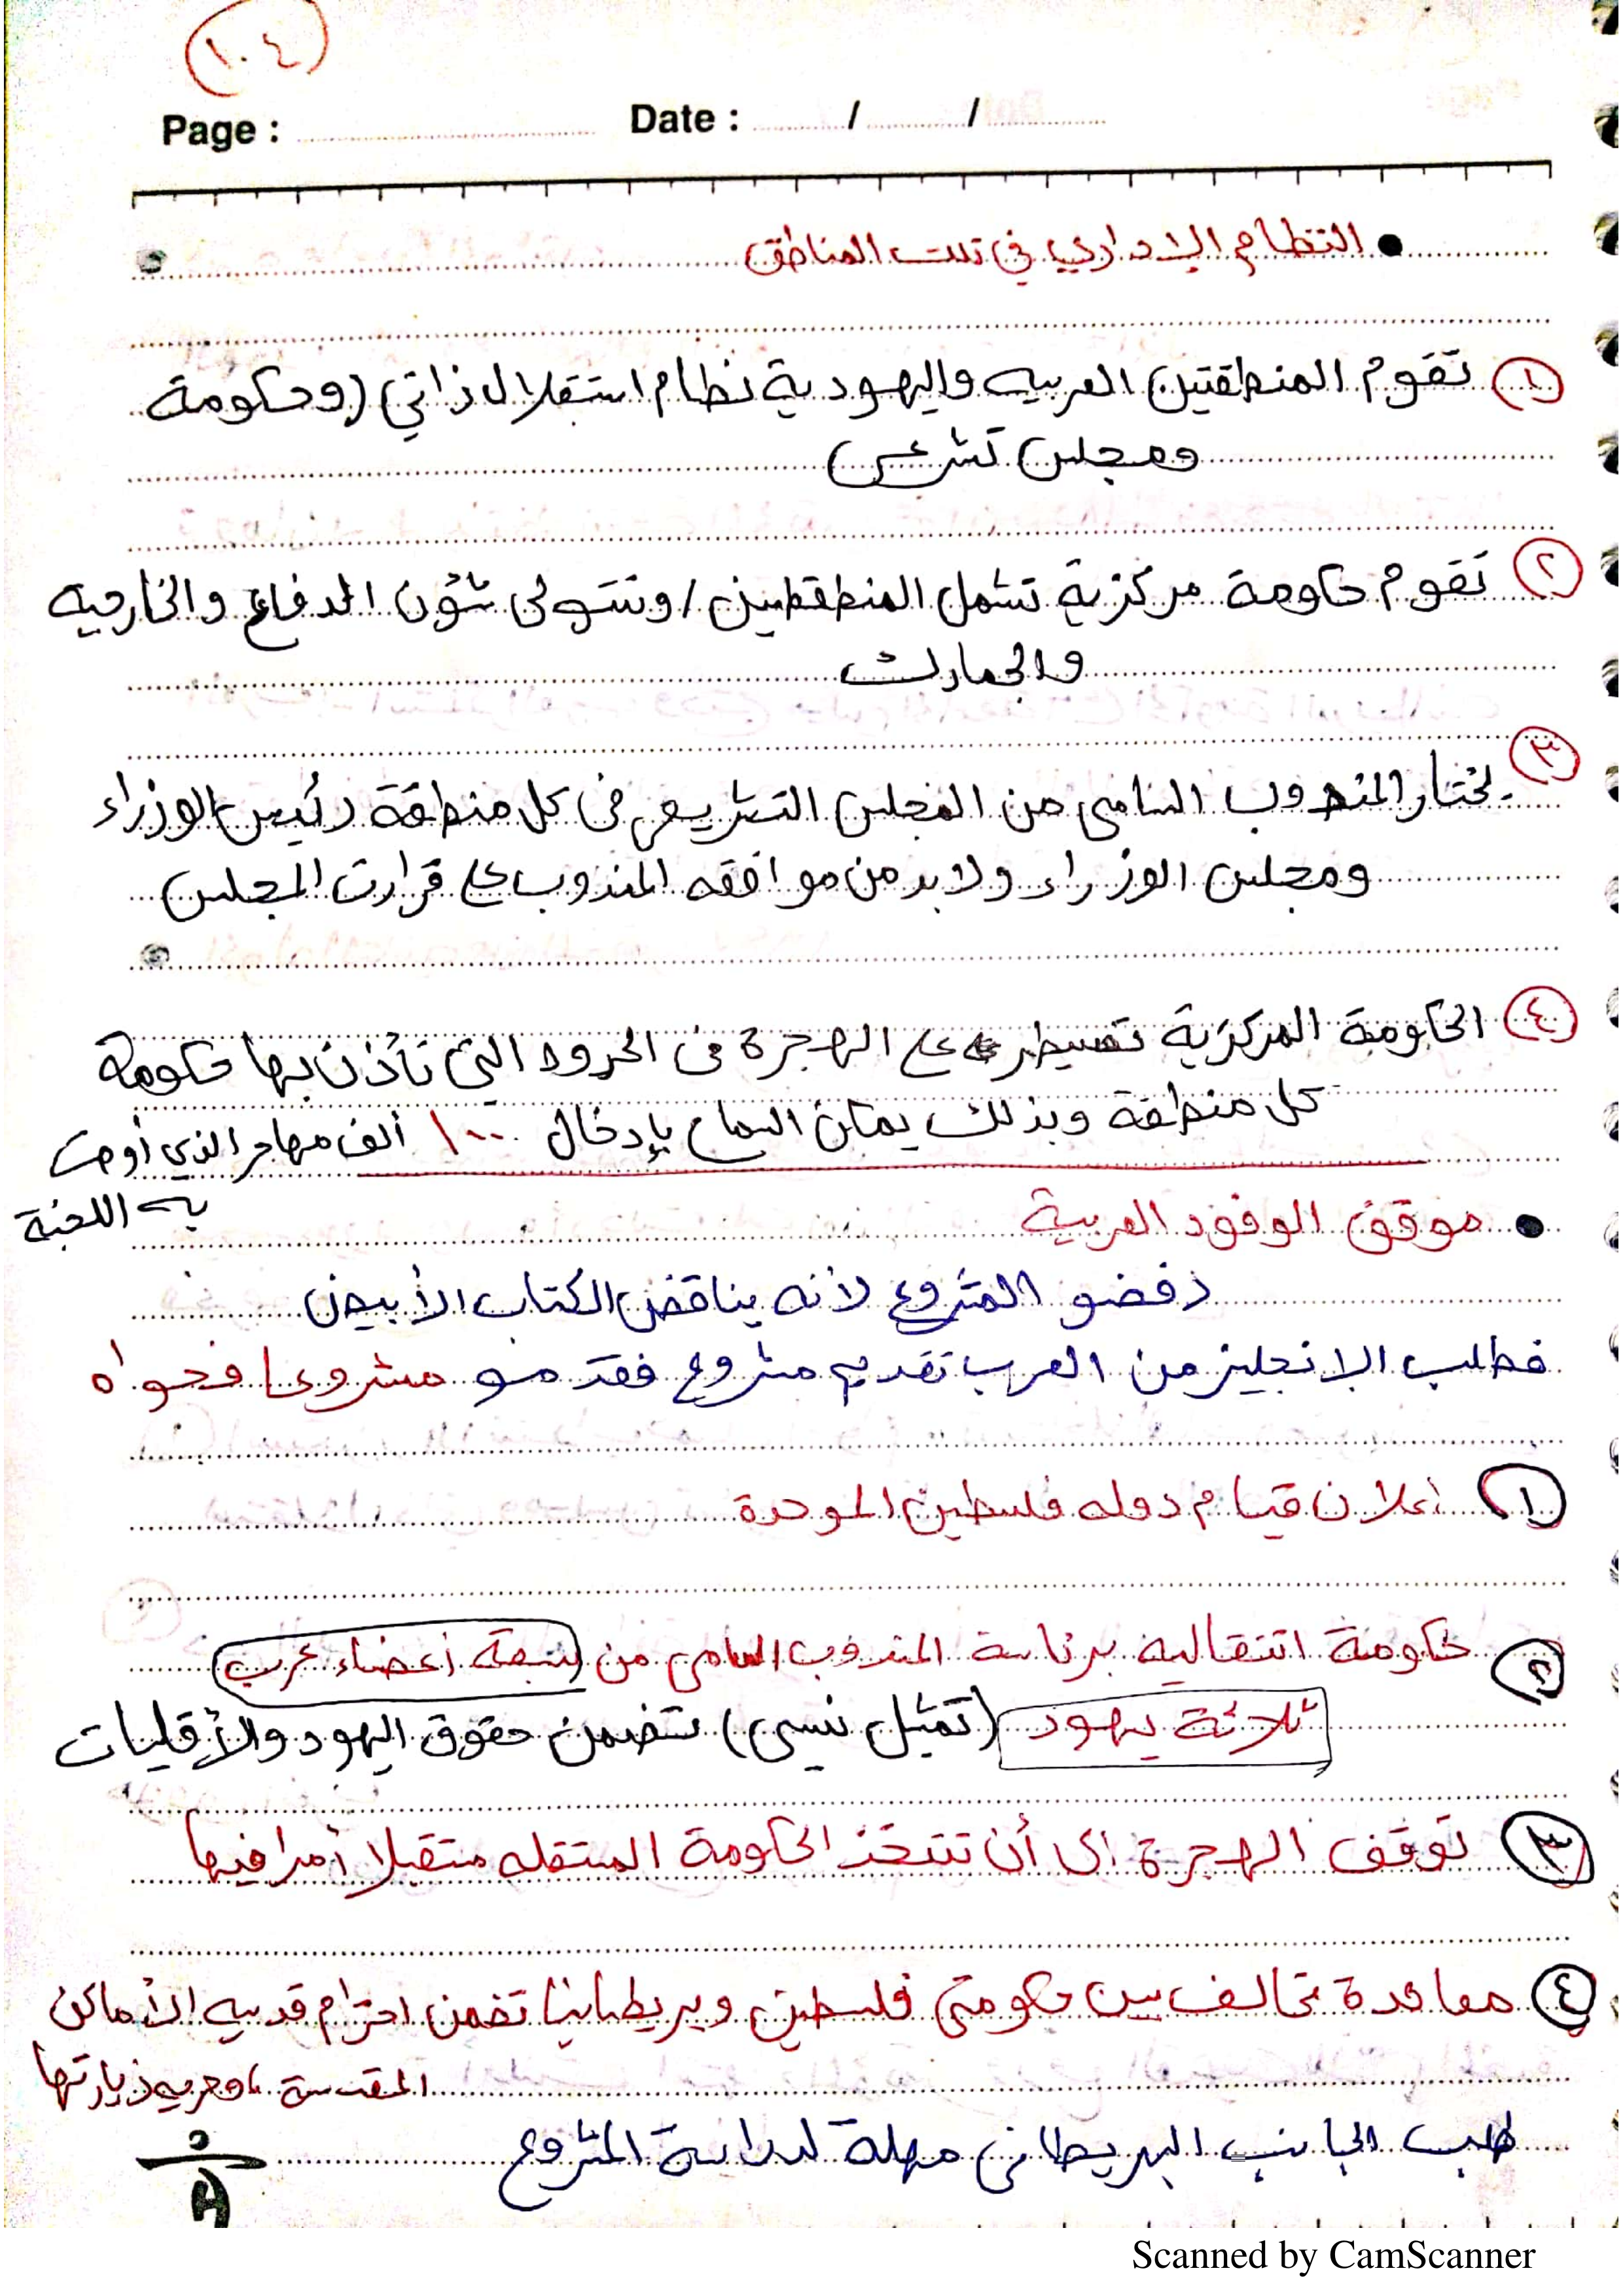 ١٠٤
Page : Date : / /
• النظام الإداري في تلك المناطق
١ تقوم المنطقتين العربيه واليهودية نظام استقلال ذاتي (وحكومة
ومجلس تشرعي
٢ تقوم حكومة مركزية تشمل المنطقطين / وتتولى شؤن الدفاع والخارجيه
والجمارك
٣ يختار المندوب السامى من المجلس التشريعى فى كل منطقة رئيس الوزراء
ومجلس الوزراء ولابد من موافقه المندوب على قرارت المجلس
٤ الحكومة المركزية تسيطر على الهجرة فى الحدود التى تأذن بها حكومة
كل منطقة وبذلك يمكن السماح بإدخال ١٠٠ ألف مهاجر الذي أوصت
به اللجنة
• موقف الوفود العربية
رفضو المشروع لأنه يناقض الكتاب الأبيض
فطلب الإنجليز من العرب تقديم مشروع فقدمو مشروعا فحواه
١ اعلان قيام دوله فلسطين الموحدة
٢ حكومة انتقالية برئاسة المندوب السامى من (سبعة أعضاء عرب
ثلاثة يهود (تمثيل نسبى) تتضمن حقوق اليهود والأقليات
٣ توقف الهجرة الى أن تتخذ الحكومة المستقله مستقبلا أمرا فيها
٤ معاهدة تحالف بين حكومتى فلسطين وبريطانيا تضمن احترام قدسيه الأماكن
المقدسة وحريه زيارتها
طلب الجانب البريطانى مهلة لدراسة المشروع
Scanned by CamScanner